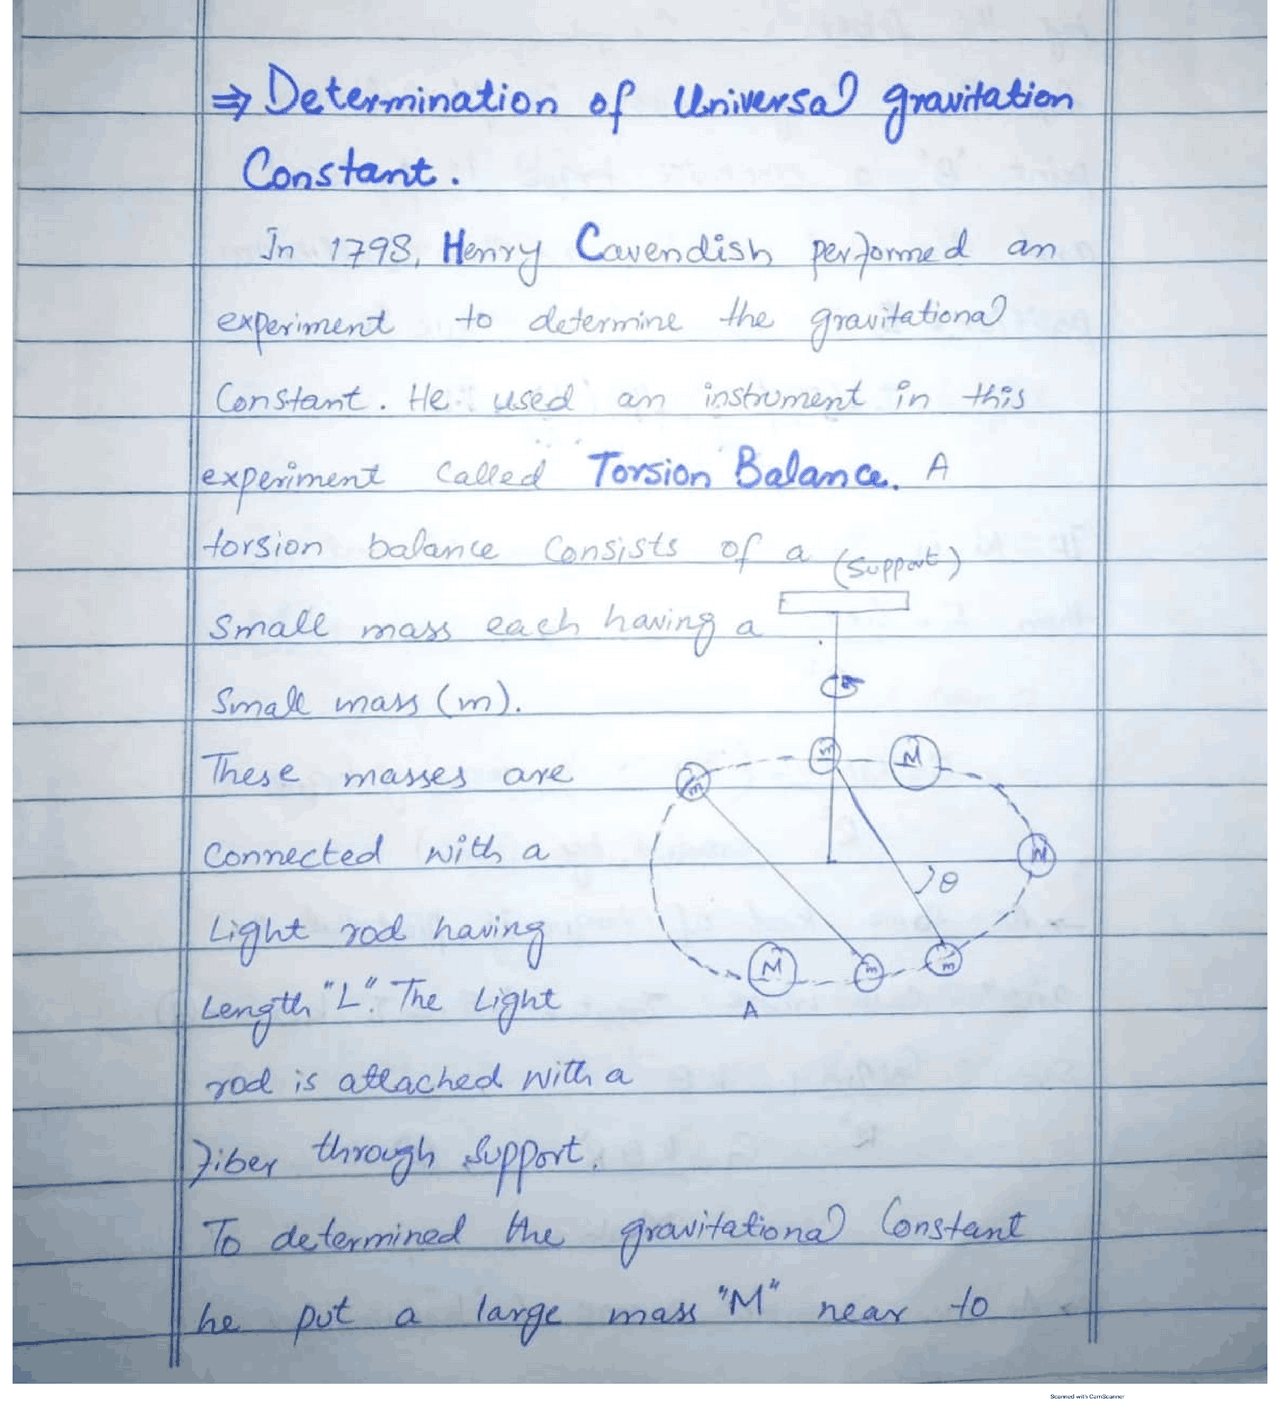 ⇒ Determination of Universal gravitation
Constant.
In 1798, Henry Cavendish performed an
experiment to determine the gravitational
Constant. He used an instrument in this
experiment called Torsion Balance. A
torsion balance consists of a
(Support)
Small mass each having a
Small mass (m).
These masses are
m
m
M
Connected with a
M
θ
Light rod having
M
m
m
Length "L". The Light
A
rod is attached with a
Fiber through Support.
To determined the gravitational Constant
he put a large mass "M" near to
Scanned with CamScanner